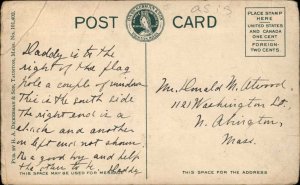 as is
POST CARD
PLACE STAMP
HERE
UNITED STATES
AND CANADA
ONE CENT
FOREIGN-
TWO CENTS
PUB. BY H. A. DICKERMAN & SON, TAUNTON, MASS.
Daddy is to the
right of the flag
pole a couple of windows
This is the south side
the right end is a
shack and another
on left end not shown.
Be a good boy and help
the others to be
Daddy
THIS SPACE MAY BE USED FOR MESSAGE
Mr. Donald M. Atwood
1121 Washington St
N. Abington,
Mass.
THIS SPACE FOR THE ADDRESS